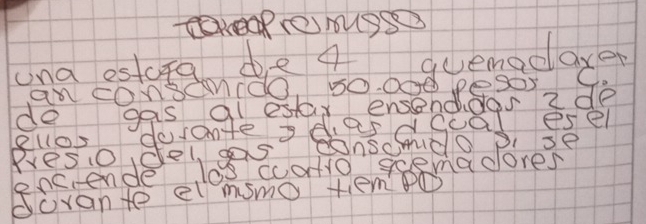 una estofa de 4 quemadaxer
an consamido 50.000 pesos C.
de gas al estar ensendidas 2 de
ellos durante 3 dias d cual es el
Presio del gas consomido si se
enciende los cuatro qemadores
durante el msmo tiempo